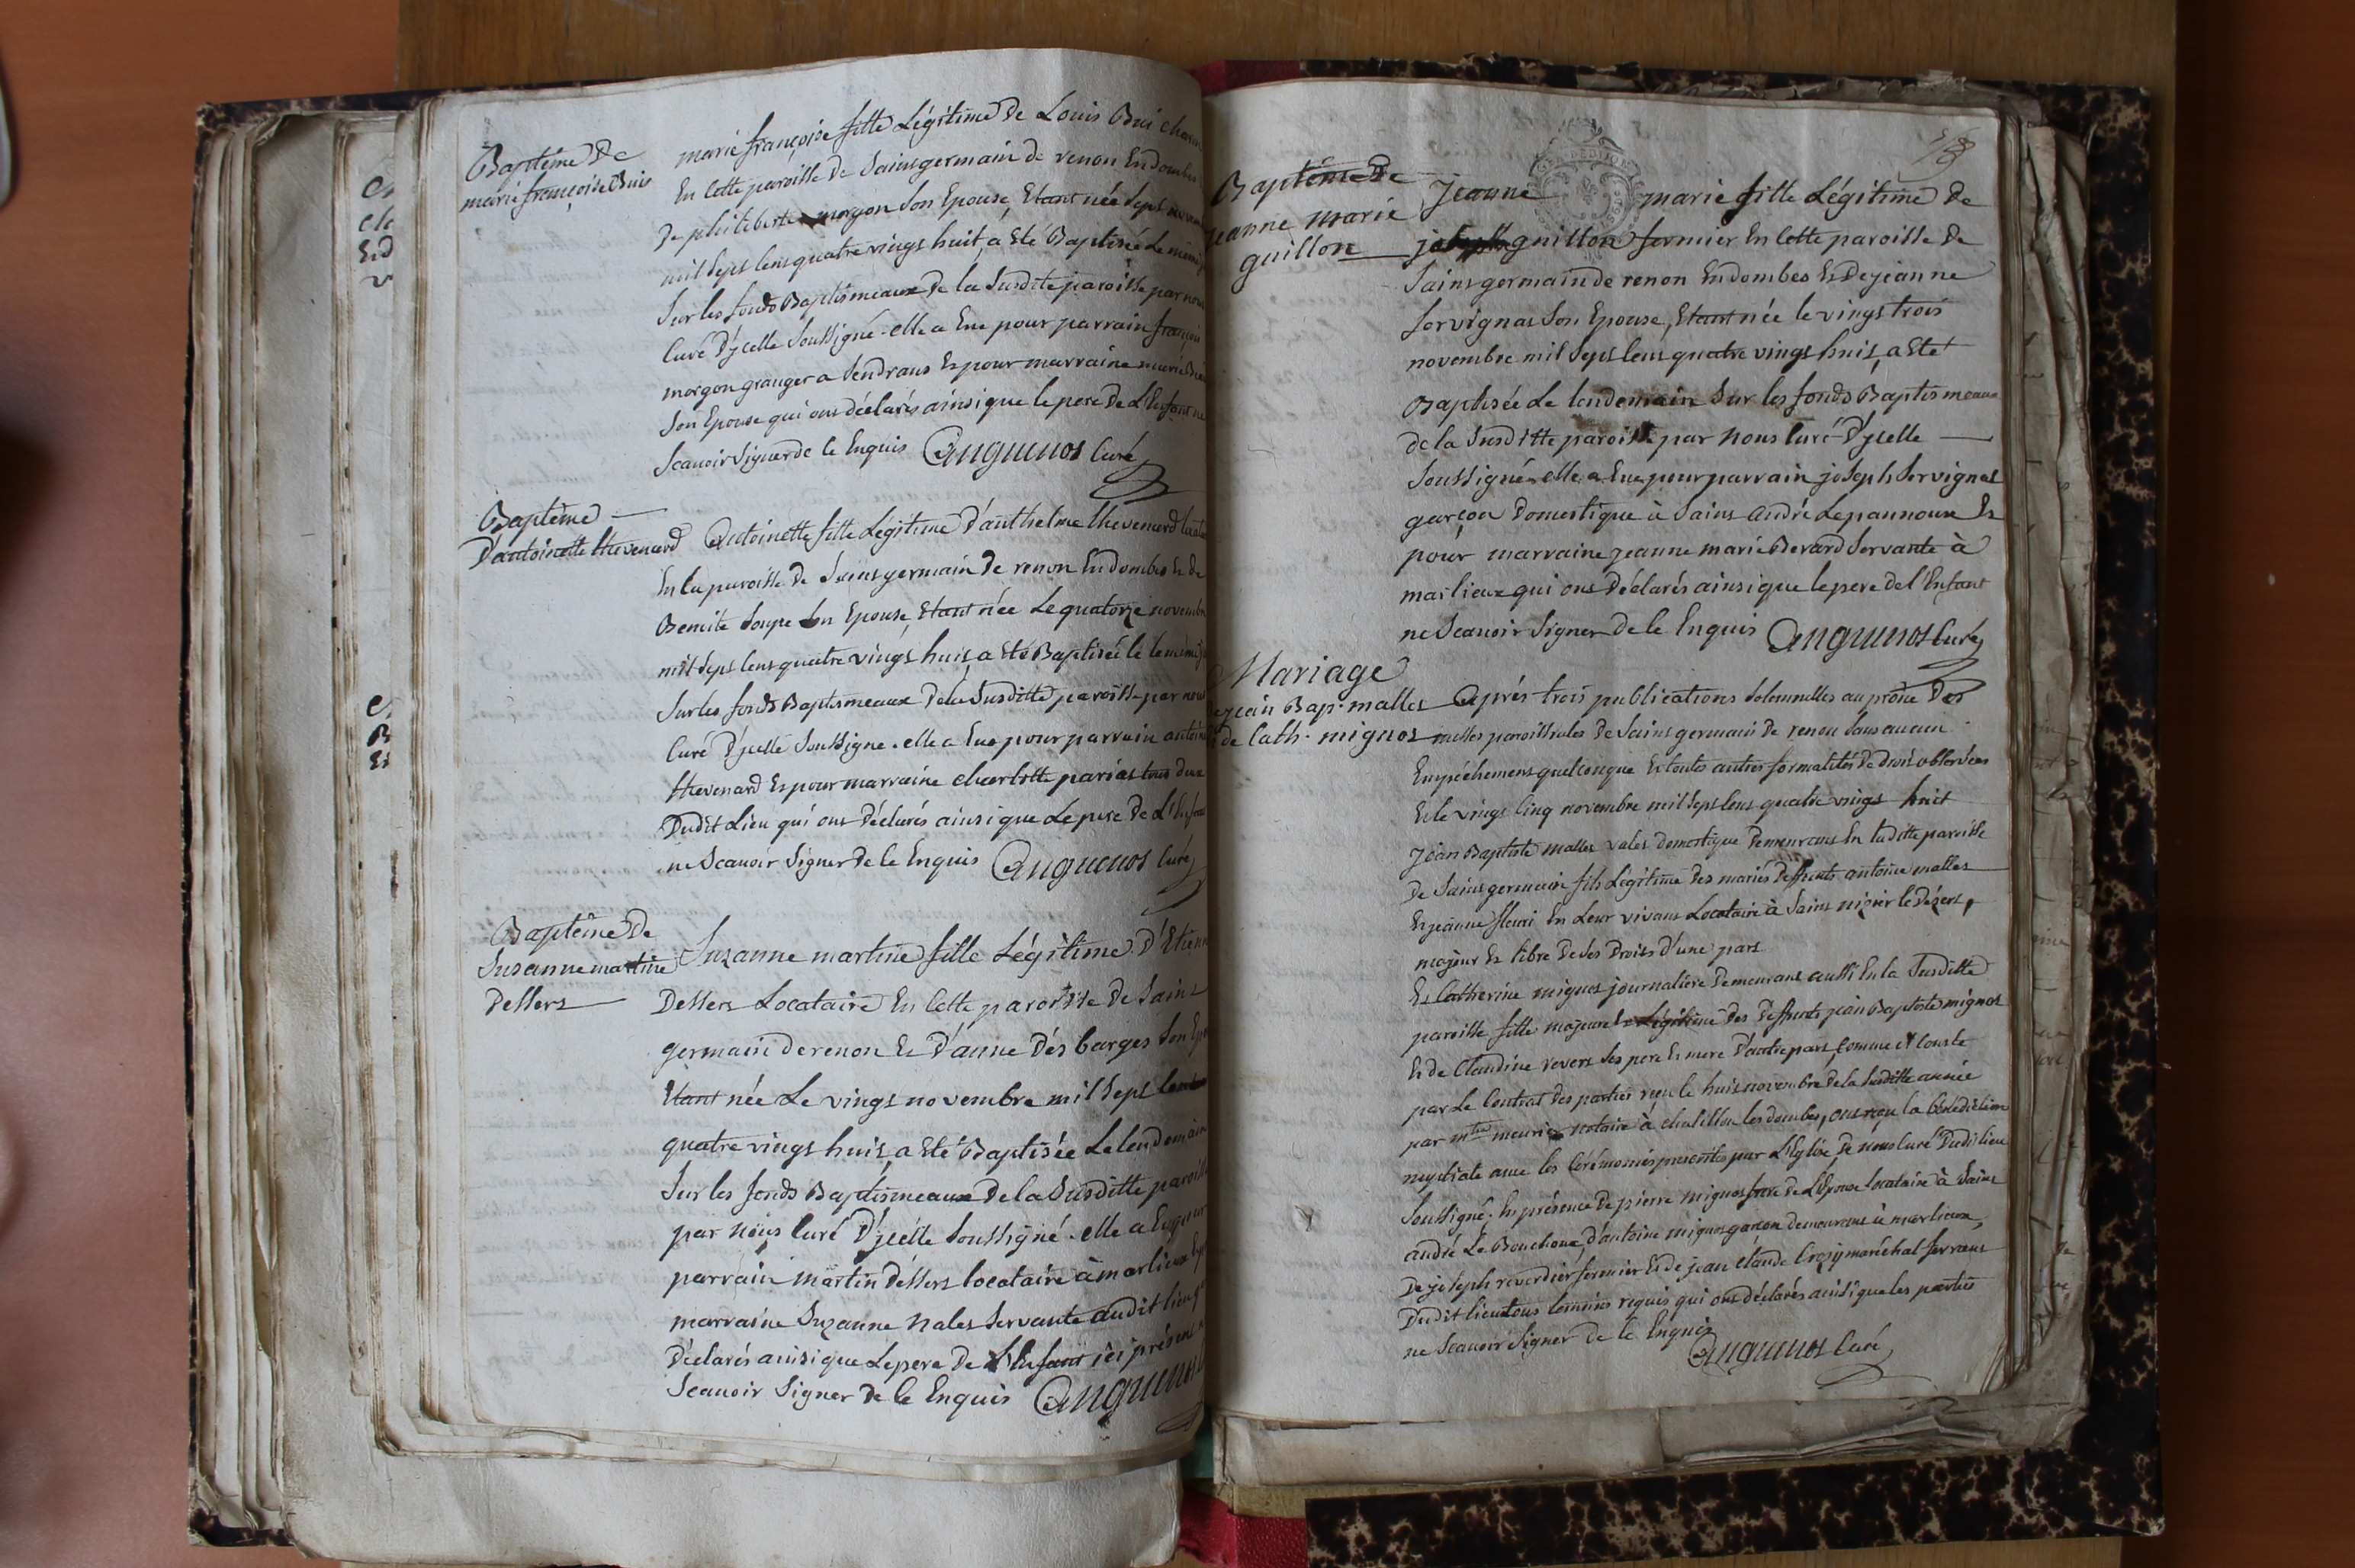 Baptême De
marie françoise Buis
marie françoise fille Légitime de Louis Bui
En Cette paroisse de Saint germain de renon En dombes
De philiberte morgon son Epouse, Etant née Sept
mil Sept Cens quatre vingt huit, a Eté Baptisée Le même
Sur les fonds Baptismeaux De la Susdite paroisse par nous
Curé D'ycelle Soussigné. elle a Eue pour parrain françois
morgon granger a Sendrans Et pour marraine marie
Son Epouse qui ont déclarés ainsi que le pere De L'Enfant ne
Scavoir Signer de ce Enquis Curé
Baptême
D'antoinette thevenard
Antoinette fille Légitime D'anthelme thevenard
En la paroisse De Saint germain De renon En dombes Et de
Benoite Soupe Son Epouse, Etant née Le quatorze novembre
mil Sept Cens quatre vingt huit, a Eté Baptisée le
Sur les fonds Baptismeaux De la Susditte paroisse par nous
Curé D'ycelle Soussigné. elle a Eue pour parrain
thevenard Et pour marraine charlotte parias tous deux
Dudit Lieu qui ont Déclarés ainsi que Le pere De L'Enfant
ne Scavoir Signer de ce Enquis Curé
Baptême De
Susanne martine
Dessers
Suzanne martine fille Légitime D'Etienne
Dessers Locataire En Cette paroisse de Saint
germain de renon Et D'anne Désbarges Son
Etant née Le vingt novembre mil Sept Cens
quatre vingt huit, a Eté Baptisée Le lendemain
Sur les fonds Baptismeaux De la Susditte paroisse
par nous Curé D'ycelle Soussigné. elle a Eu pour
parrain martin Dessers locataire à marlieux
marraine Suzanne nales Servante audit lieu
Déclarés ainsi que Le pere De L'Enfant ici présent
Scavoir Signer de Ce Enquis
Baptême De
Jeanne marie
guillon
Jeanne marie fille Légitime De
joseph guillon fermier En Cette paroisse De
Saint germain de renon En dombes Et De jeanne
Servignat Son Epouse, Etant née le vingt trois
novembre mil Sept Cens quatre vingt huit, a Eté
Baptisée Le lendemain Sur les fonds Baptismeaux
de la Susditte paroisse par nous Curé D'ycelle
Soussigné. elle a Eue pour parrain joseph Servignat
garçon Domestique à Saint andré Lepannoux Et
pour marraine jeanne marie Berard Servante à
marlieux qui ont Déclarés ainsi que le pere de l'Enfant
ne Scavoir Signer De Ce Enquis Curé
Mariage
De jean Bap. malles
Et de Cath. mignot
Après trois publications Solemnelles au prône Des
messes paroissiales De Saint germain de renon Sans aucun
Empéchement quelconque Et toutes autres formalités De droit observées
Et Le vingt Cinq novembre mil Sept Cens quatre vingt huit
Jean Baptiste malles valet domestique Demeurant En laditte paroisse
De Saint germain fils Légitime Des mariés Deffunts antoine malles
Et jeanne fleuri En Leur vivant Locataire à Saint nizier le Désert,
majeur Et libre De Ses Droits D'une part
Et Catherine mignot journaliere Demeurant aussi En la Susditte
paroisse fille majeure Légitime Des Deffunts jean Baptiste mignot
Et de Claudine revers Ses pere Et mere D'autre part, Comme il Conste
par Le Contrat Des parties reçu le huit novembre de la Susditte année
par mtre notaire à chatillon les dombes, ont reçu la Bénédiction
nuptiale avec les Cérémonies prescrites par L'Eglise De nous Curé Dudit lieu
Soussigné. En présence De pierre mignot frere De L'Epouse locataire à Saint
andré Le Bouchoux, D'antoine mignot garçon Demeurant à marlieux,
De joseph reverdier fermier Et de jean claude maréchal ferrant
Dudit lieu tous temoins requis qui ont déclarés ainsi que les parties
ne Scavoir Signer De Ce Enquis
Curé